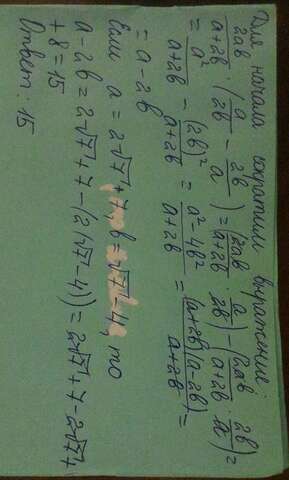 Для начала сократим выражение:
2ab/(a+2b) · (a/2b − 2b/a) = (2ab/(a+2b) · a/2b) − (2ab/(a+2b) · 2b/a) =
= a²/(a+2b) − (2b)²/(a+2b) = (a²−4b²)/(a+2b) = (a+2b)(a−2b)/(a+2b) =
= a−2b
Если a = 2√7+7, b = √7−4, то
a−2b = 2√7+7−(2(√7−4)) = 2√7+7−2√7+
+8=15
Ответ: 15